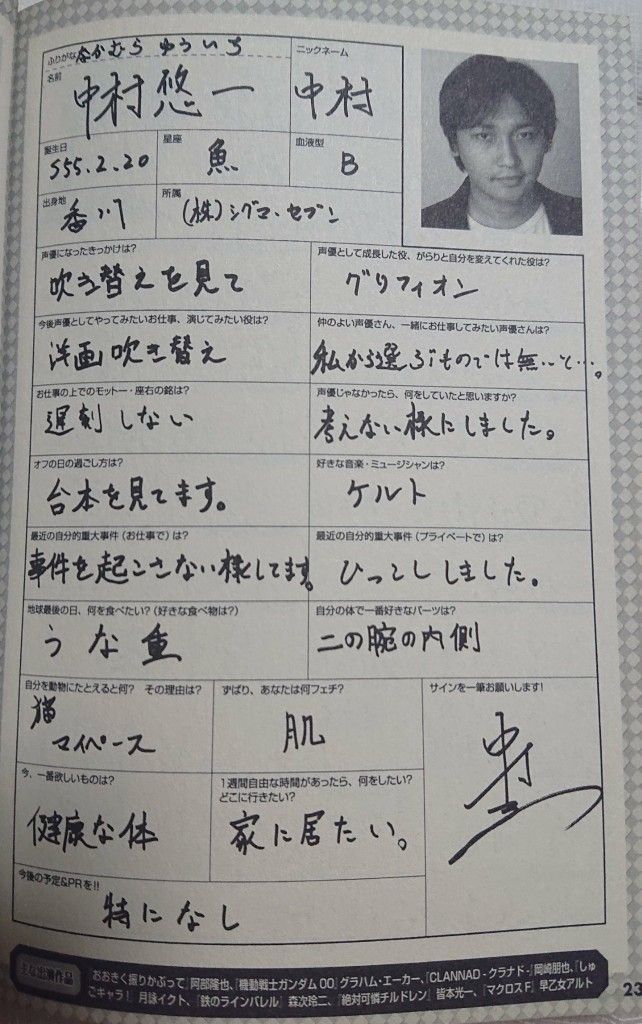 ふりがな なかむら ゆういち
名前 中村悠一
ニックネーム 中村
誕生日 S55.2.20
星座 魚
血液型 B
出身地 香川
所属 (株)シグマ・セブン
声優になったきっかけは?
吹き替えを見て
声優として成長した役、がらりと自分を変えてくれた役は?
グリフィオン
今後声優としてやってみたいお仕事、演じてみたい役は?
洋画吹き替え
仲のよい声優さん、一緒にお仕事してみたい声優さんは?
私から選ぶものでは無いと…。
お仕事の上でのモットー・座右の銘は?
遅刻しない
声優じゃなかったら、何をしていたと思いますか?
考えない様にしました。
オフの日の過ごし方は?
台本を見てます。
好きな音楽・ミュージシャンは?
ケルト
最近の自分的重大事件(お仕事で)は?
事件を起こさない様してます。
最近の自分的重大事件(プライベートで)は?
ひっこししました。
地球最後の日、何を食べたい?(好きな食べ物は?)
うな重
自分の体で一番好きなパーツは?
二の腕の内側
自分を動物にたとえると何? その理由は?
猫
マイペース
ずばり、あなたは何フェチ?
肌
サインを一筆お願いします!
中村
今、一番欲しいものは?
健康な体
1週間自由な時間があったら、何をしたい?
どこに行きたい?
家に居たい。
今後の予定&PRを!!
特になし
主な出演作品
おおきく振りかぶって』阿部隆也、『機動戦士ガンダム00』グラハム・エーカー、『CLANNAD-クラナド-』岡崎朋也、『しゅ
ごキャラ!』月詠イクト、『鉄のラインバレル』森次玲二、『絶対可憐チルドレン』皆本光一、『マクロスF』早乙女アルト
23